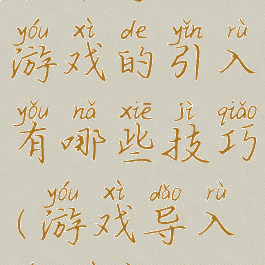 yóu xì de yǐn rù
游戏的引入
yǒu nǎ xiē jì qiǎo
有哪些技巧
yóu xì dǎo rù
(游戏导入